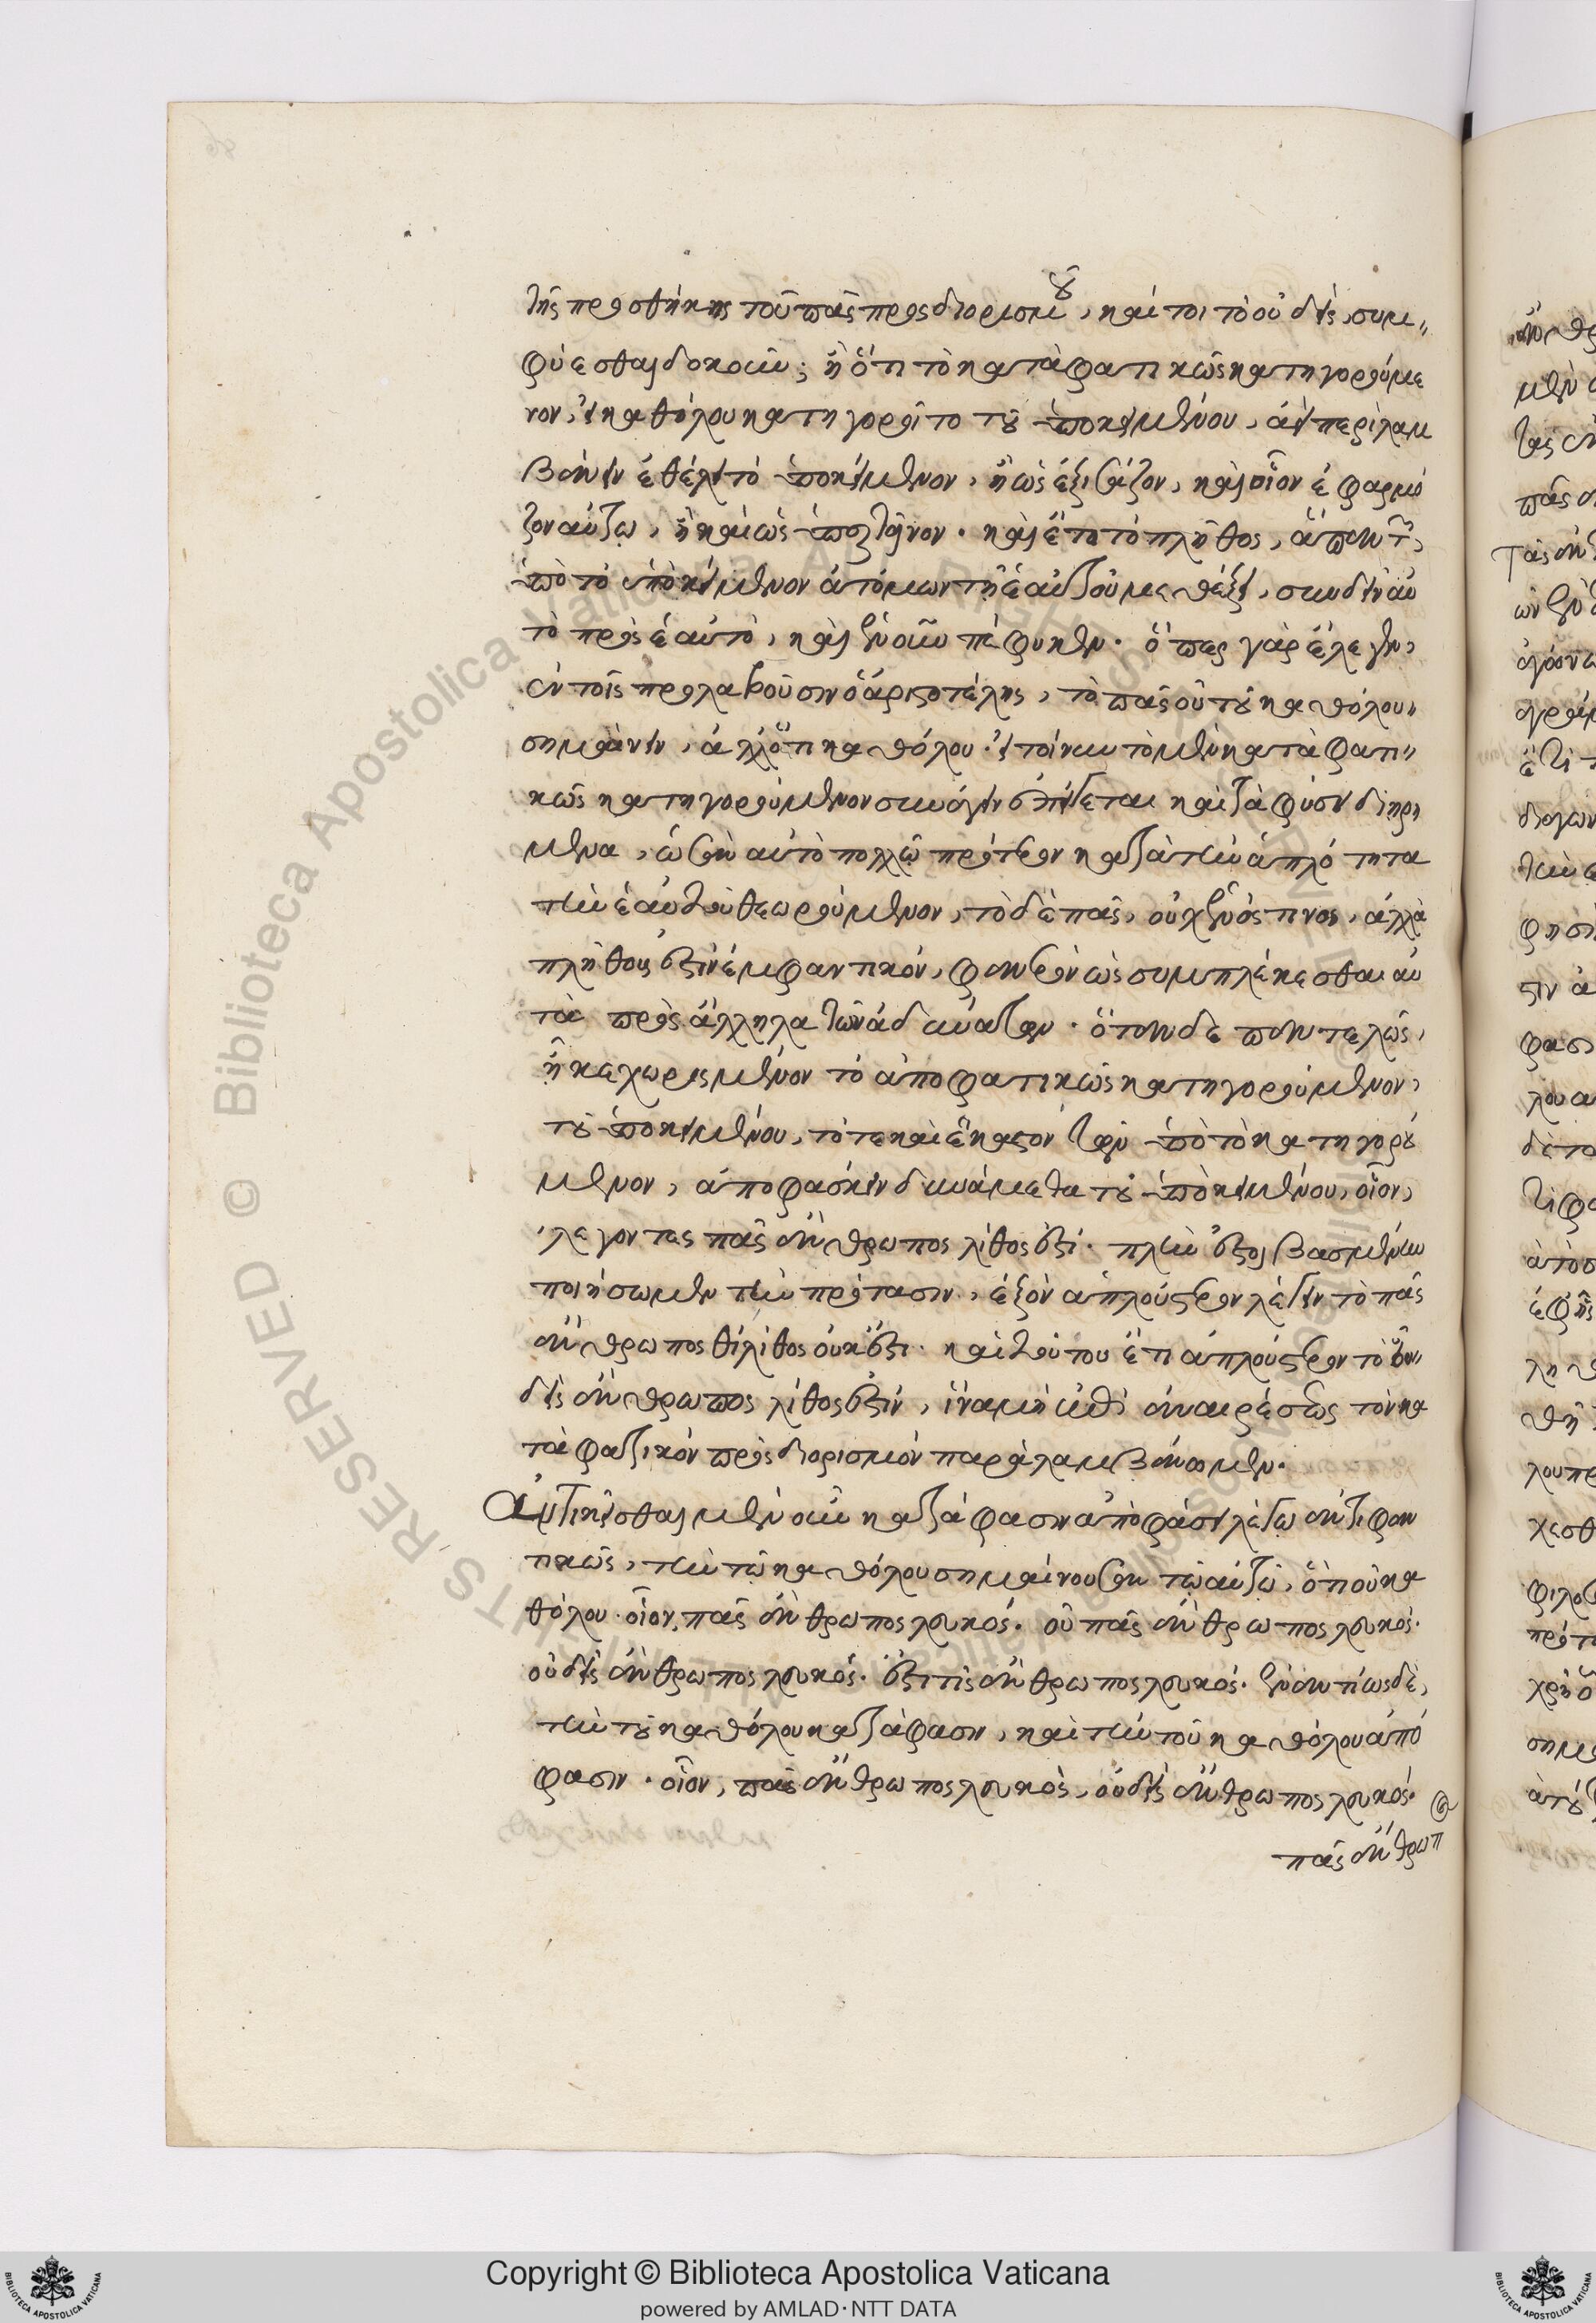 τῆς προσθήκης τοῦ πᾶς προσδιορισμοῦ, καίτοι τὸ οὐδείς, συμ
φύεσθαι δοκοῦν; ἢ ὅτι τὸ καταφατικῶς κατηγορούμε
νον, εἰ καθόλου κατηγοροῖτο τοῦ ὑποκειμένου, ἀεὶ περιλαμ
βάνειν ἐθέλει τὸ ὑποκείμενον, ἢ ὡς ἐξισάζον, καὶ οἷον ἐφαρμό
ζον αὐτῷ, ἢ καὶ ὡς ὑπερτεῖνον. καὶ ἔτι τὸ πλῆθος, ἅπαν τῶν
ὑπὸ τὸ ὑποκείμενον ἀτόμων τῇ ἑαυτοῦ μεθέξει, συνδεῖν αὐ
τὸ πρὸς ἑαυτὸ, καὶ ἑνοῦν πέφυκεν. ὅπερ γὰρ ἔλεγεν,
ἐν τοῖς προλαβοῦσιν ὁ ἀριστοτέλης, τὸ πᾶς οὐ τὸ καθόλου
σημαίνειν, ἀλλ' ὅτι καθόλου. εἰ τοίνυν τὸ μὲν καταφατι
κῶς κατηγορούμενον συνάγειν ἐπείγεται καὶ τὰ φύσει διῃρη
μένα, ὡς ἂν αὐτὸ πολλῷ πρότερον κατὰ τὴν ἁπλότητα
τὴν ἑαυτοῦ θεωρούμενον, τὸ δὲ πᾶς, οὐχ ἑνός τινος, ἀλλὰ
πλήθους ἐστὶν ἐμφαντικόν, φανερὸν ὡς συμπλέκεσθαι αὐ
τὰ πρὸς ἄλληλα τῶν ἀδυνάτων. ὅταν δὲ παντελῶς,
ᾖ κεχωρισμένον τὸ ἀποφατικῶς κατηγορούμενον,
τοῦ ὑποκειμένου, τότε καὶ ἕκαστον τῶν ὑπὸ τὸ κατηγορού
μενον, ἀποφάσκειν δυνάμεθα τοῦ ὑποκειμένου, οἷον,
λέγοντες πᾶς ἄνθρωπος λίθος ἐστί. πλὴν βεβιασμένην
ποιήσωμεν τὴν πρότασιν, ἐξὸν ἁπλούστερον λέγειν τὸ πᾶς
ἄνθρωπος λίθος οὐκ ἔστι. καὶ τούτου ἔτι ἁπλούστερον τὸ οὐ
δεὶς ἄνθρωπος λίθος ἐστίν, ἵνα μὴ μετὰ ἀναιρέσεως τὸν κα
ταφατικὸν προσδιορισμὸν παραλαμβάνωμεν.
Ἀντικεῖσθαι μὲν οὖν κατάφασιν ἀποφάσει λέγω ἀντιφα
τικῶς, τὴν τῷ καθόλου σημαίνουσαν τῷ αὐτῷ, ὅτι οὐ κα
θόλου. οἷον, πᾶς ἄνθρωπος λευκός. οὐ πᾶς ἄνθρωπος λευκός.
οὐδεὶς ἄνθρωπος λευκός. ἔστι τὶς ἄνθρωπος λευκός. ἐναντίως δὲ,
τὴν τοῦ καθόλου κατάφασιν, καὶ τὴν τοῦ καθόλου ἀπό
φασιν. οἷον, πᾶς ἄνθρωπος λευκὸς, οὐδεὶς ἄνθρωπος λευκός.
πᾶς ἄνθρωπ